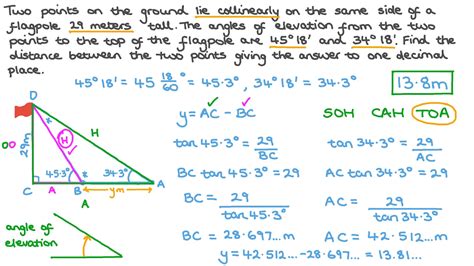 Two points on the ground lie collinearly on the same side of a
flagpole 29 meters tall. The angles of elevation from the two
points to the top of the flagpole are 45°18' and 34°18'. Find the
distance between the two points giving the answer to one decimal
place.
45°18' = 45 18/60° = 45.3°, 34°18' = 34.3°
13.8m
y = AC - BC
SOH CAH TOA
D
H
H
29m
45.3°
34.3°
C
A
B
ym
A
A
tan 45.3° = 29/BC
tan 34.3° = 29/AC
BC tan 45.3° = 29
AC tan 34.3° = 29
BC = 29/tan 45.3°
AC = 29/tan 34.3°
BC = 28.697... m
AC = 42.512... m
y = 42.512... - 28.697... = 13.81...
angle of
elevation